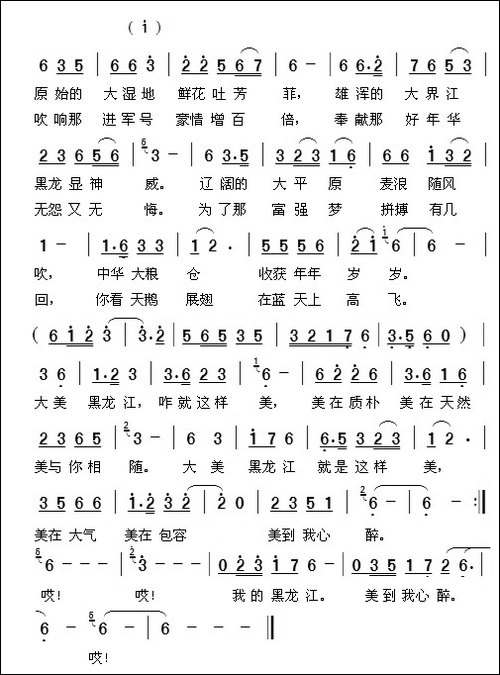 ( i )
6 3 5 | 6 6 3 | 2 2 5 6 7 | 6 - | 6 6·2 | 7 6 5 3 |
原始的 大湿地 鲜花吐芳 菲，雄浑的 大界江
吹响那 进军号 豪情增百 倍，奉献那 好年华
2 3 6 5 6 | 3 - | 6 3·5 | 3 2 3 1 6 | 6 6 | 1 3 2 |
黑龙显神 威。辽阔的 大平原 麦浪 随风
无怨又无 悔。为了那 富强梦 拼搏 有几
1 - | 1·6 3 3 | 1 2 · | 5 5 5 6 | 2 i 6 | 6 - |
吹，中华大粮 仓 收获年年 岁 岁。
回，你看天鹅 展翅 在蓝天上 高 飞。
( 6 1 2 3 3 | 5 6 3 5 | 3 2 1 7 6 | 3·5 6 0 ) |
3 6 | 1·2 3 | 3·6 2 3 | 6 - | 6 2 2 6 | 3·6 1 6 |
大美 黑龙江，咋就这样 美，美在质朴 美在天然
2 3 6 5 | 3 - | 6 3 | i 7 6 | 6·5 3 2 3 | 1 2 · |
美与你相 随。大 美 黑龙江 就是这样 美，
3 5 6 6 | 1·2 3 2 | 2 0 | 2 3 5 1 | 6 - | 6 - :||
美在大气 美在包容 美到我心 醉。
6 - - - | 3 - - - | 0 2 3 1 7 6 | 6 - - | 0 3 5 1 7 2 6 · |
哎！ 哎！ 我的黑龙江。 美到我心醉。
6 - 6 - | 6 - - - ||
哎！